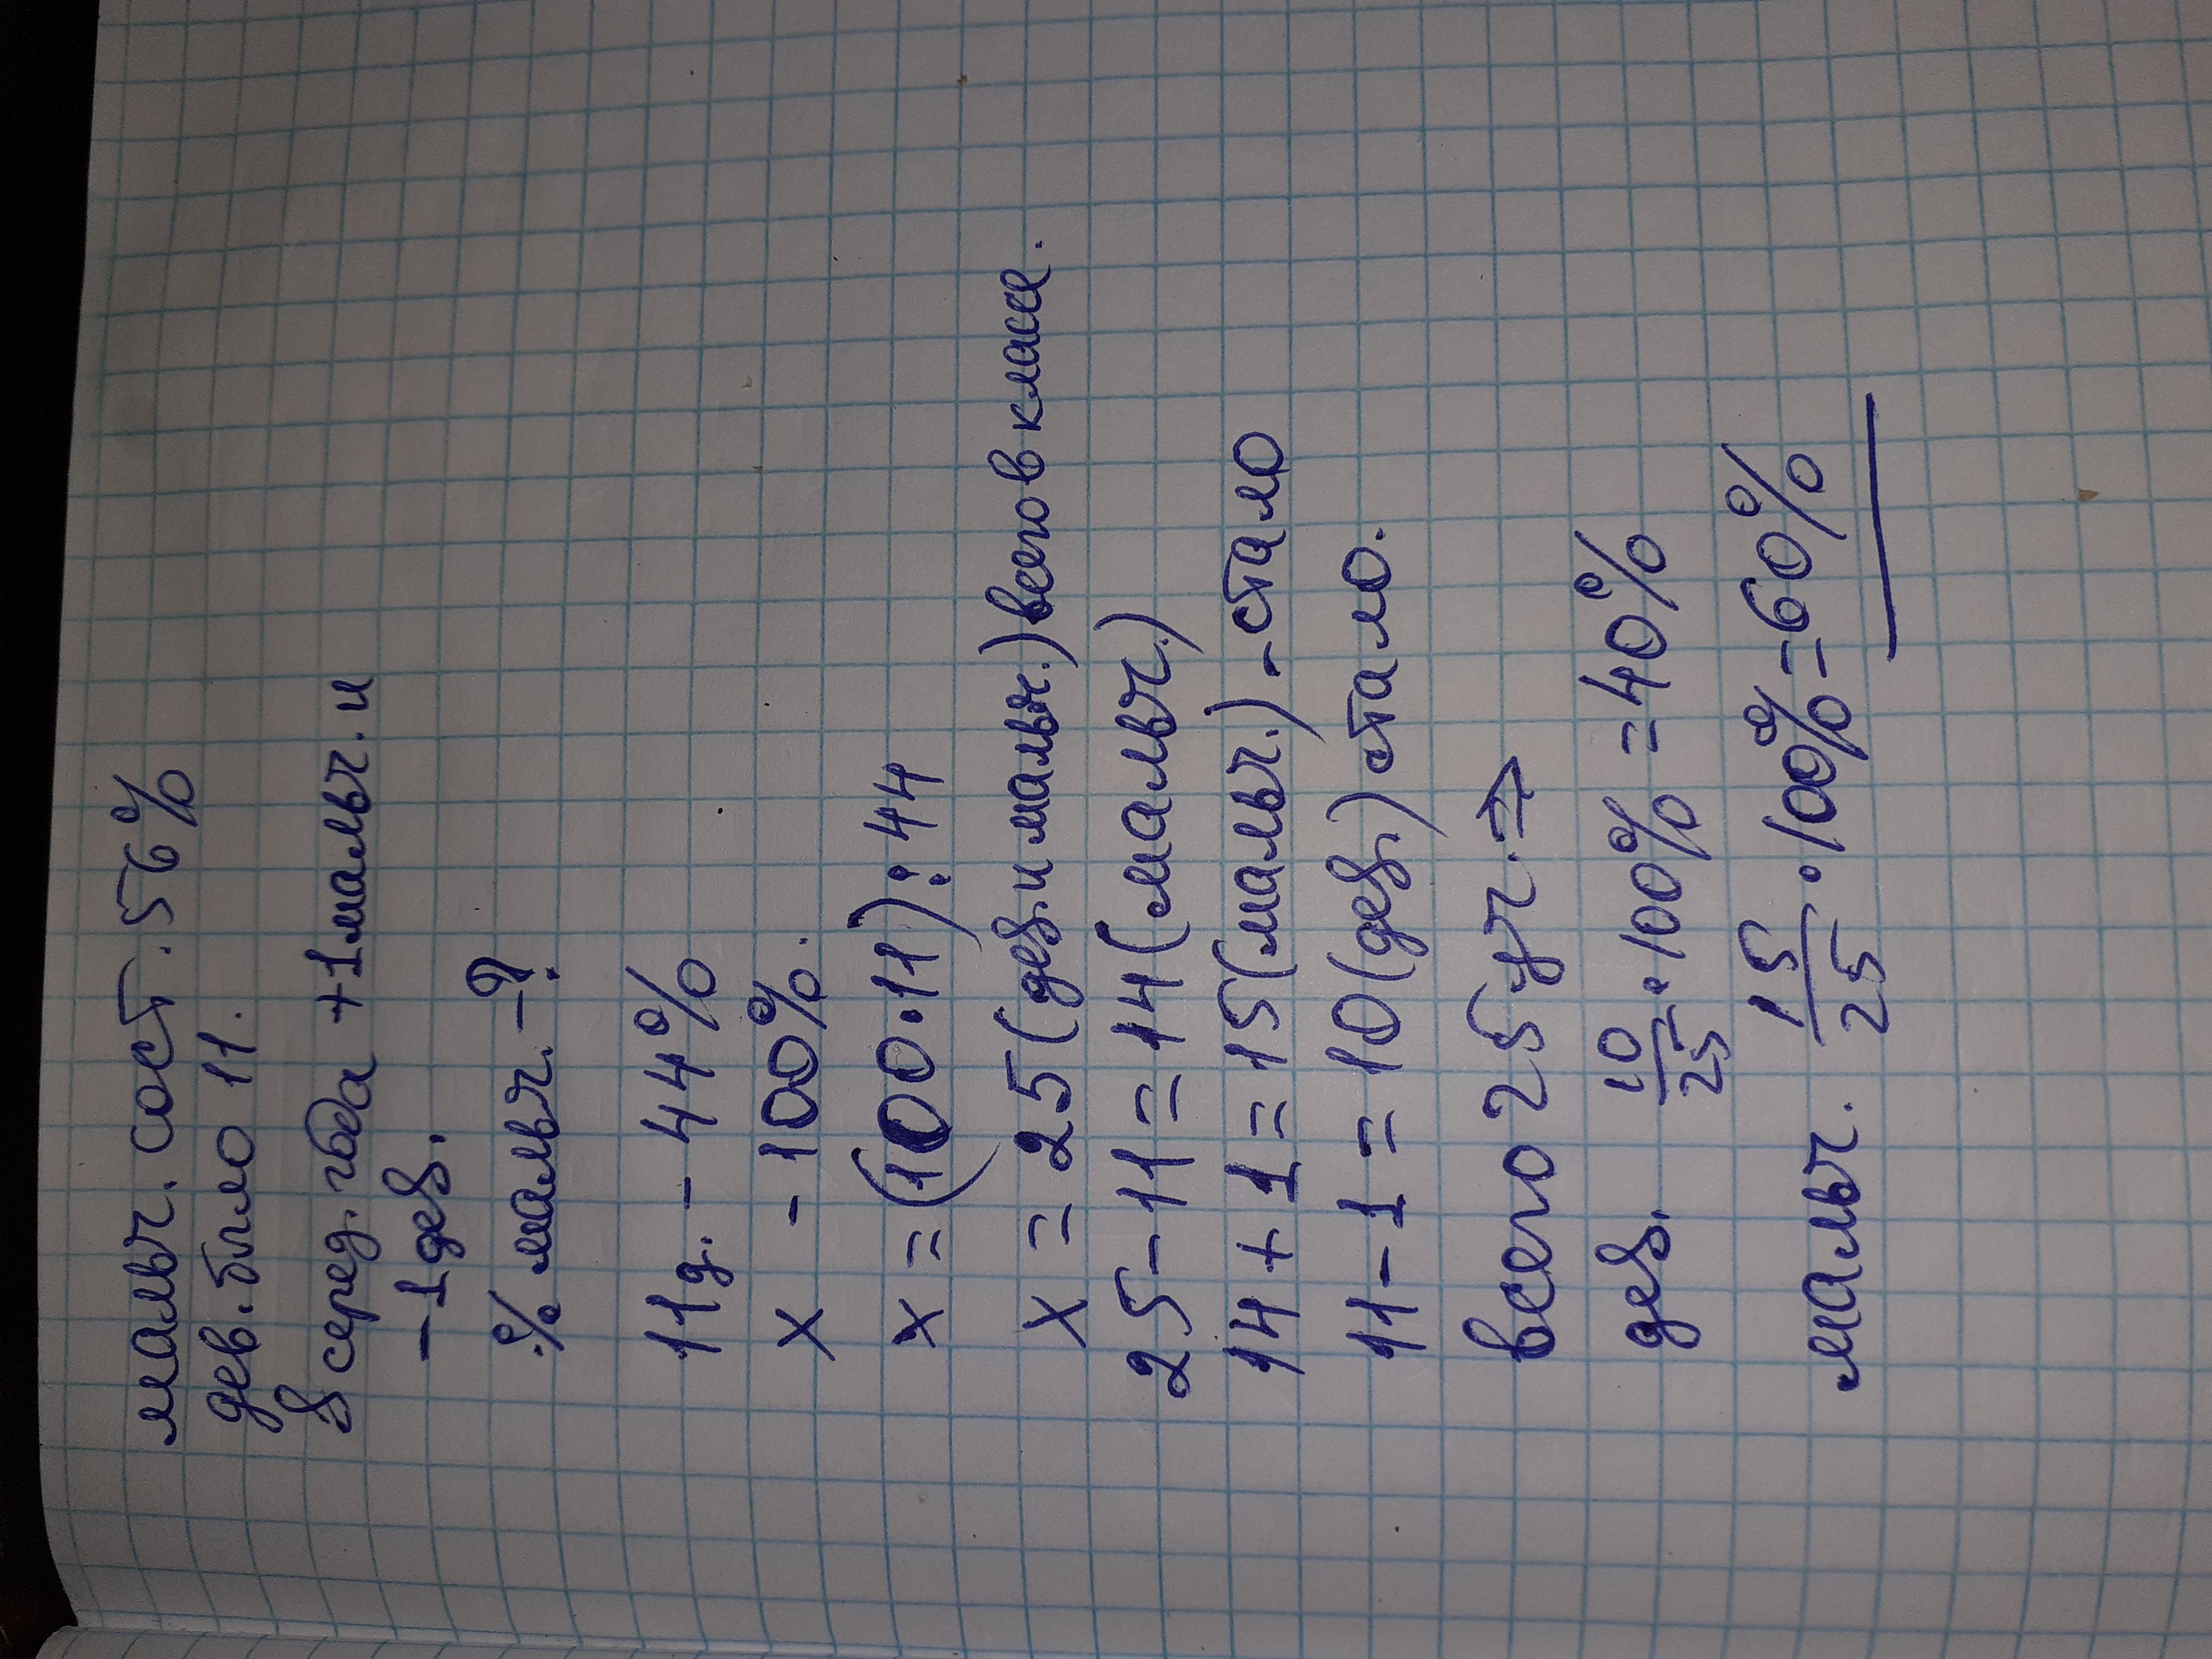 мальч. сост. 56%
дев. было 11.
В серед. года +1 мальч. и
-1 дев.
% мальч. - ?
11 д. - 44%
х - 100%.
х = (100·11) : 44
х = 25 (дев. и мальч.) всего в классе.
25 - 11 = 14 (мальч.)
14 + 1 = 15 (мальч.) - стало
11 - 1 = 10 (дев.) стало.
всего 25 уч. ⇒
дев. 10/25 · 100% = 40%
мальч. 15/25 · 100% = 60%